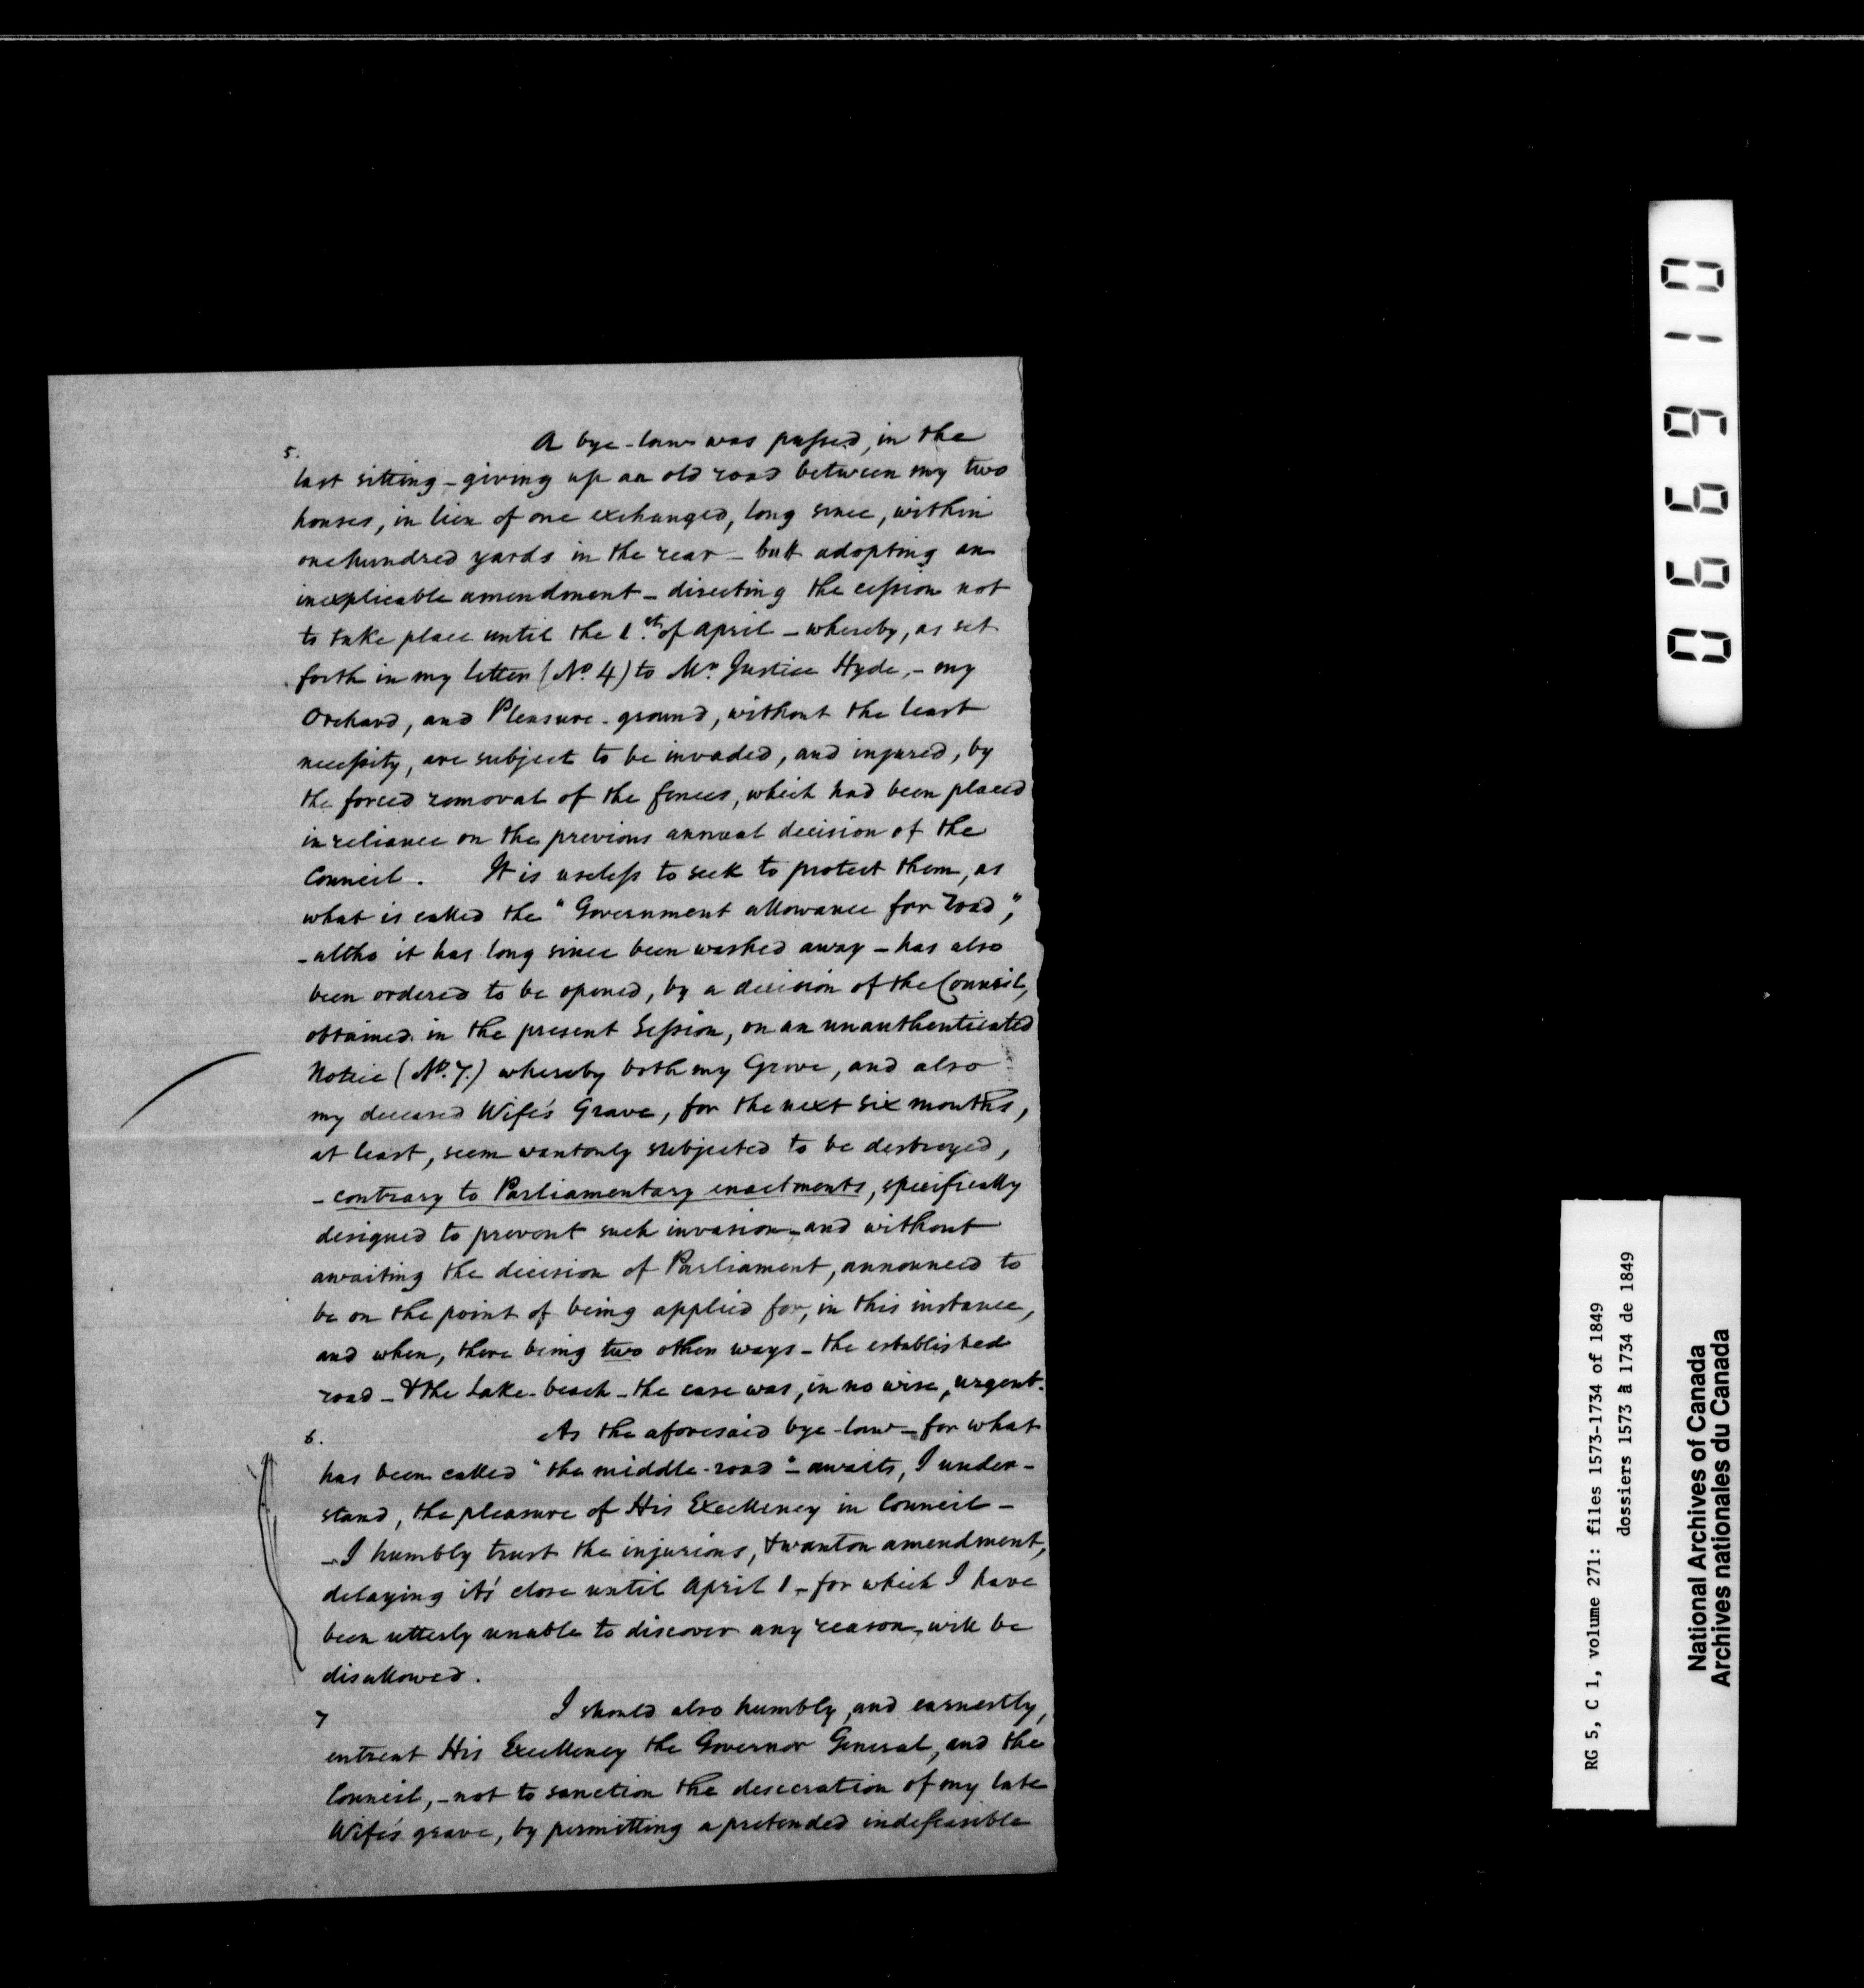 5.
A bye-law was passed, in the
last sitting - giving up an old road between my two
houses, in lieu of one exchanged, long since, within
one hundred yards in the rear - but adopting an
inexplicable amendment - directing the cession not
to take place until the 1.st of April - whereby, as set
forth in my letter (No. 4) to Mr. Justice Hyde, - my
Orchard, and Pleasure-ground, without the least
necessity, are subject to be invaded, and injured, by
the forced removal of the fences, which had been placed
in reliance on the previous annual decision of the
Council. It is useless to seek to protect them, as
what is called the "Government allowance for road",
- altho it has long since been washed away - has also
been ordered to be opened, by a decision of the Council,
obtained in the present Session, on an unauthenticated
Notice (No. 7.) whereby both my Grove, and also
my deceased Wife's Grave, for the next six months,
at least, seem wantonly subjected to be destroyed,
- contrary to Parliamentary enactments, specifically
designed to prevent such invasion - and without
awaiting the decision of Parliament, announced to
be on the point of being applied for, in this instance,
and when, there being two other ways - the established
road - & the Lake-beach - the case was, in no wise, urgent.
6.
As the aforesaid bye-law - for what
has been called "the middle-road" - awaits, I under-
stand, the pleasure of His Excellency in Council -
- I humbly trust the injurious, & wanton amendment,
delaying it's close until April 1 - for which I have
been utterly unable to discover any reason - will be
disallowed.
7
I should also humbly, and earnestly,
entreat His Excellency the Governor General, and the
Council, - not to sanction the desecration of my late
Wife's grave, by permitting a pretended indefeasible
066910
RG 5, C 1, volume 271: files 1573-1734 of 1849
dossiers 1573 à 1734 de 1849
National Archives of Canada
Archives nationales du Canada